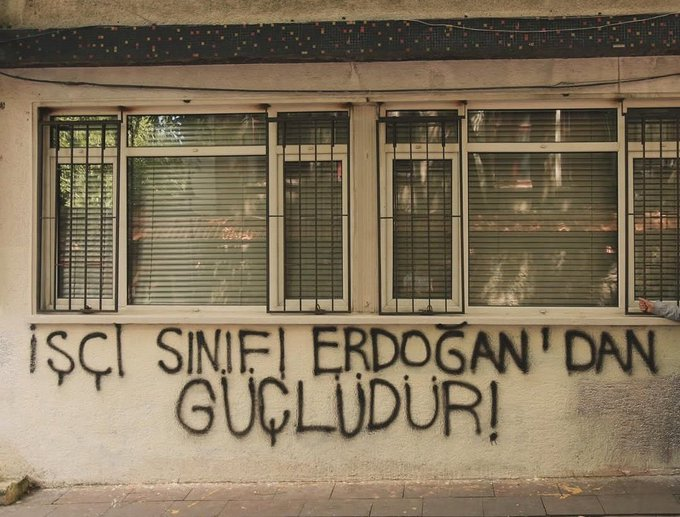 İŞÇİ SINIFI ERDOĞAN'DAN
GÜÇLÜDÜR!